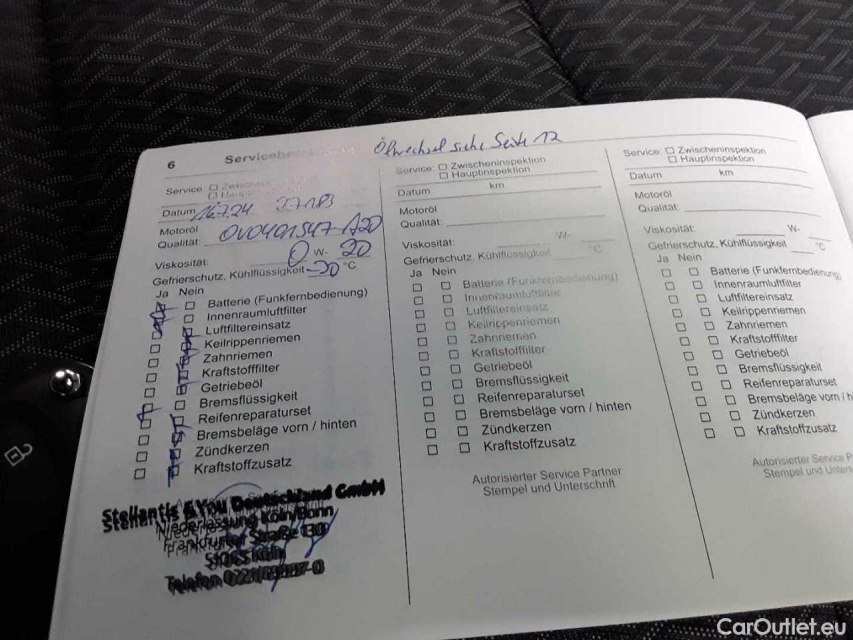 Ölwechsel siehe Seite 12
6
Service: □ Zwischen
□ Haupt
Datum 16.7.24
Motoröl
Qualität: OVO401547-A20
Viskosität: 0 W- 20
Gefrierschutz, Kühlflüssigkeit -30 °C
Ja Nein
Batterie (Funkfernbedienung)
Innenraumluftfilter
Luftfiltereinsatz
Keilrippenriemen
Zahnriemen
Kraftstofffilter
Getriebeöl
Bremsflüssigkeit
Reifenreparaturset
Bremsbeläge vorn / hinten
Zündkerzen
Kraftstoffzusatz
Stellantis &You Deutschland GmbH
Niederlassung Köln/Bonn
Frankfurter Straße 130
Köln
Telefon
Service: □ Zwischeninspektion
□ Hauptinspektion
Datum km
Motoröl
Qualität:
Viskosität: W-
Gefrierschutz, Kühlflüssigkeit °C
Ja Nein
Batterie (Funkfernbedienung)
Innenraumluftfilter
Luftfiltereinsatz
Keilrippenriemen
Zahnriemen
Kraftstofffilter
Getriebeöl
Bremsflüssigkeit
Reifenreparaturset
Bremsbeläge vorn / hinten
Zündkerzen
Kraftstoffzusatz
Autorisierter Service Partner
Stempel und Unterschrift
Service: □ Zwischeninspektion
□ Hauptinspektion
Datum km
Motoröl
Qualität:
Viskosität: W-
Gefrierschutz, Kühlflüssigkeit °C
Ja Nein
Batterie (Funkfernbedienung)
Innenraumluftfilter
Luftfiltereinsatz
Keilrippenriemen
Zahnriemen
Kraftstofffilter
Getriebeöl
Bremsflüssigkeit
Reifenreparaturset
Bremsbeläge vorn / h
Zündkerzen
Kraftstoffzusatz
Autorisierter Service P
Stempel und Unters
CarOutlet.eu